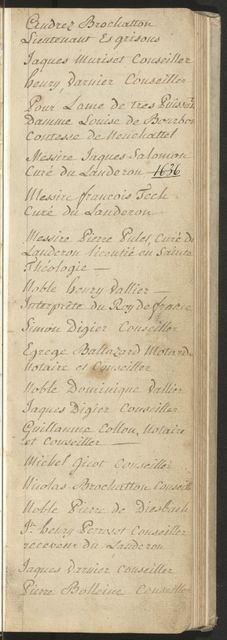 Andrez Brochatton
Lieutenant Es grisons
Jaques Muriset Conseiller
henry Varnier Conseiller
Pour Lame de tres Puissante
Damme Louise de Bourbon
Contesse de Neuchattel
Messire Jaques Salomon
Curé du Landeron 1636
Messire francois Tech
Curé du Landeron
Messire Pierre Pules, Curé du
Landeron licentié en Sainte
Théologie —
Noble henry Vallier —
Interprête du Roy de france
Simon Digier Conseiller
Egrege Baltazard Motard
Notaire et Conseiller
Noble Dominique Vallier
Jaques Digier Conseiller
Guillaume Collon, Notaire
et Conseiller —
Michel Gicot Conseiller
Nicolas Brochatton Conseill
Noble Pierre de Diesbach
Jn henry Perroset Conseiller
receveur du Landeron
Jaques Varnier Conseiller
Pierre Conseiller